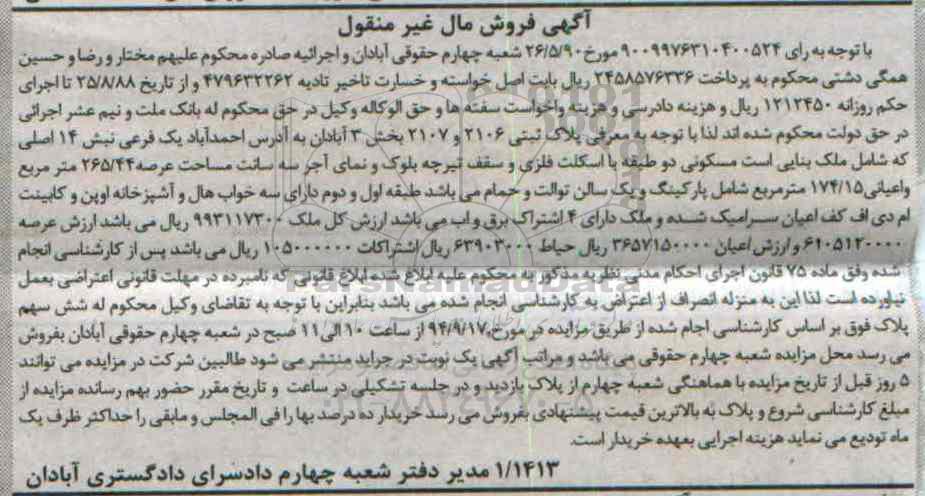 آگهی فروش مال غیر منقول
با توجه به رای ۹۰۰۹۹۷۶۳۱۰۴۰۰۵۲۴ مورخ ۲۶/۵/۹۰ شعبه چهارم حقوقی آبادان و اجرائیه صادره محکوم علیهم مختار و رضا و حسین
همگی دشتی محکوم به پرداخت ۲۴۵۸۵۷۶۳۳۶ ریال بابت اصل خواسته و خسارت تاخیر تادیه ۴۷۹۶۳۲۲۶۲ و از تاریخ ۲۵/۸/۸۸ تا اجرای
حکم روزانه ۱۲۱۲۴۵۰ ریال و هزینه دادرسی و هزینه واخواست سفته ها و حق الوکاله وکیل در حق محکوم له بانک ملت و نیم عشر اجرائی
در حق دولت محکوم شده اند لذا با توجه به معرفی پلاک ثبتی ۲۱۰۶ و ۲۱۰۷ بخش ۳ آبادان به آدرس احمدآباد یک فرعی نبش ۱۴ اصلی
که شامل ملک بنایی است مسکونی دو طبقه با اسکلت فلزی و سقف تیرچه بلوک و نمای آجر سه سانت مساحت عرصه ۲۶۵/۴۴ متر مربع
واعیانی ۱۷۴/۱۵ مترمربع شامل پارکینگ و یک سالن توالت و حمام می باشد طبقه اول و دوم دارای سه خواب هال و آشپزخانه اوپن و کابینت
ام دی اف کف اعیان سرامیک شده و ملک دارای ۴ اشتراک برق و اب می باشد ارزش کل ملک ۹۹۳۱۱۷۳۰۰ ریال می باشد ارزش عرصه
۶۱۰۵۱۲۰۰۰۰ و ارزش اعیان ۳۶۵۷۱۵۰۰۰۰ ریال حیاط ۶۳۹۰۳۰۰۰ ریال اشتراکات ۱۰۵۰۰۰۰۰۰ ریال می باشد پس از کارشناسی انجام
شده وفق ماده ۷۵ قانون اجرای احکام مدنی نظریه مذکور به محکوم علیه ابلاغ شده ابلاغ قانونی که نامبرده در مهلت قانونی اعتراضی بعمل
نیاورده است لذا این به منزله انصراف از اعتراض به کارشناسی انجام شده می باشد بنابراین با توجه به تقاضای وکیل محکوم له شش سهم
پلاک فوق بر اساس کارشناسی اجام شده از طریق مزایده در مورخ ۹۴/۹/۱۷ از ساعت ۱۰ الی ۱۱ صبح در شعبه چهارم حقوقی آبادان بفروش
می رسد محل مزایده شعبه چهارم حقوقی می باشد و مراتب آگهی یک نوبت در جراید منتشر می شود طالبین شرکت در مزایده می توانند
۵ روز قبل از تاریخ مزایده با هماهنگی شعبه چهارم از پلاک بازدید و در جلسه تشکیلی در ساعت و تاریخ مقرر حضور بهم رسانده مزایده از
مبلغ کارشناسی شروع و پلاک به بالاترین قیمت پیشنهادی بفروش می رسد خریدار ده درصد بها را فی المجلس و مابقی را حداکثر ظرف یک
ماه تودیع می نماید هزینه اجرایی بعهده خریدار است.
۱/۱۴۱۳ مدیر دفتر شعبه چهارم دادسرای دادگستری آبادان